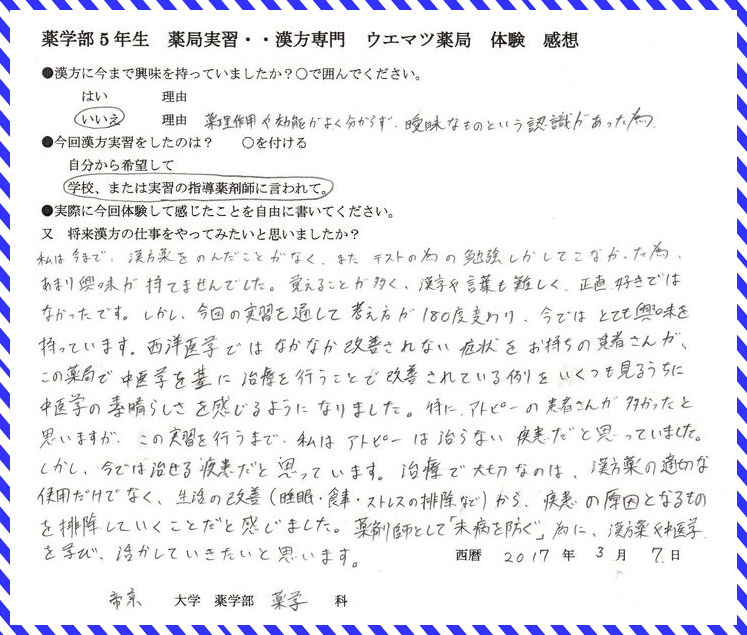 薬学部5年生　薬局実習・・漢方専門　ウエマツ薬局　体験　感想
●漢方に今まで興味を持っていましたか？○で囲んでください。
はい　理由
いいえ　理由　薬理作用や効能がよく分からず、曖昧なものという認識があった為。
●今回漢方実習をしたのは？　○を付ける
自分から希望して
学校、または実習の指導薬剤師に言われて。
●実際に今回体験して感じたことを自由に書いてください。
又　将来漢方の仕事をやってみたいと思いましたか？
私は今まで、漢方薬をのんだことがなく、また テストの為の勉強しかしてこなかった為、
あまり興味が持てませんでした。覚えることが多く、漢字や言葉も難しく、正直好きでは
なかったです。しかし、今回の実習を通して考え方が180度変わり、今ではとても興味を
持っています。西洋医学ではなかなか改善されない症状をお持ちの患者さんが、
この薬局で中医学を基に治療を行うことで改善されている例をいくつも見るうちに
中医学の素晴らしさを感じるようになりました。特に、アトピーの患者さんが多かったと
思いますが、この実習を行うまで、私はアトピーは治らない疾患だと思っていました。
しかし、今では治せる疾患だと思っています。治療で大切なのは、漢方薬の適切な
使用だけでなく、生活の改善（睡眠・食事・ストレスの排除など）から、疾患の原因となるもの
を排除していくことだと感じました。薬剤師として「未病を防ぐ」為に、漢方薬や中医学
を学び、活かしていきたいと思います。
西暦　2017　年　3　月　7.日
帝京　大学　薬学部　薬学　科